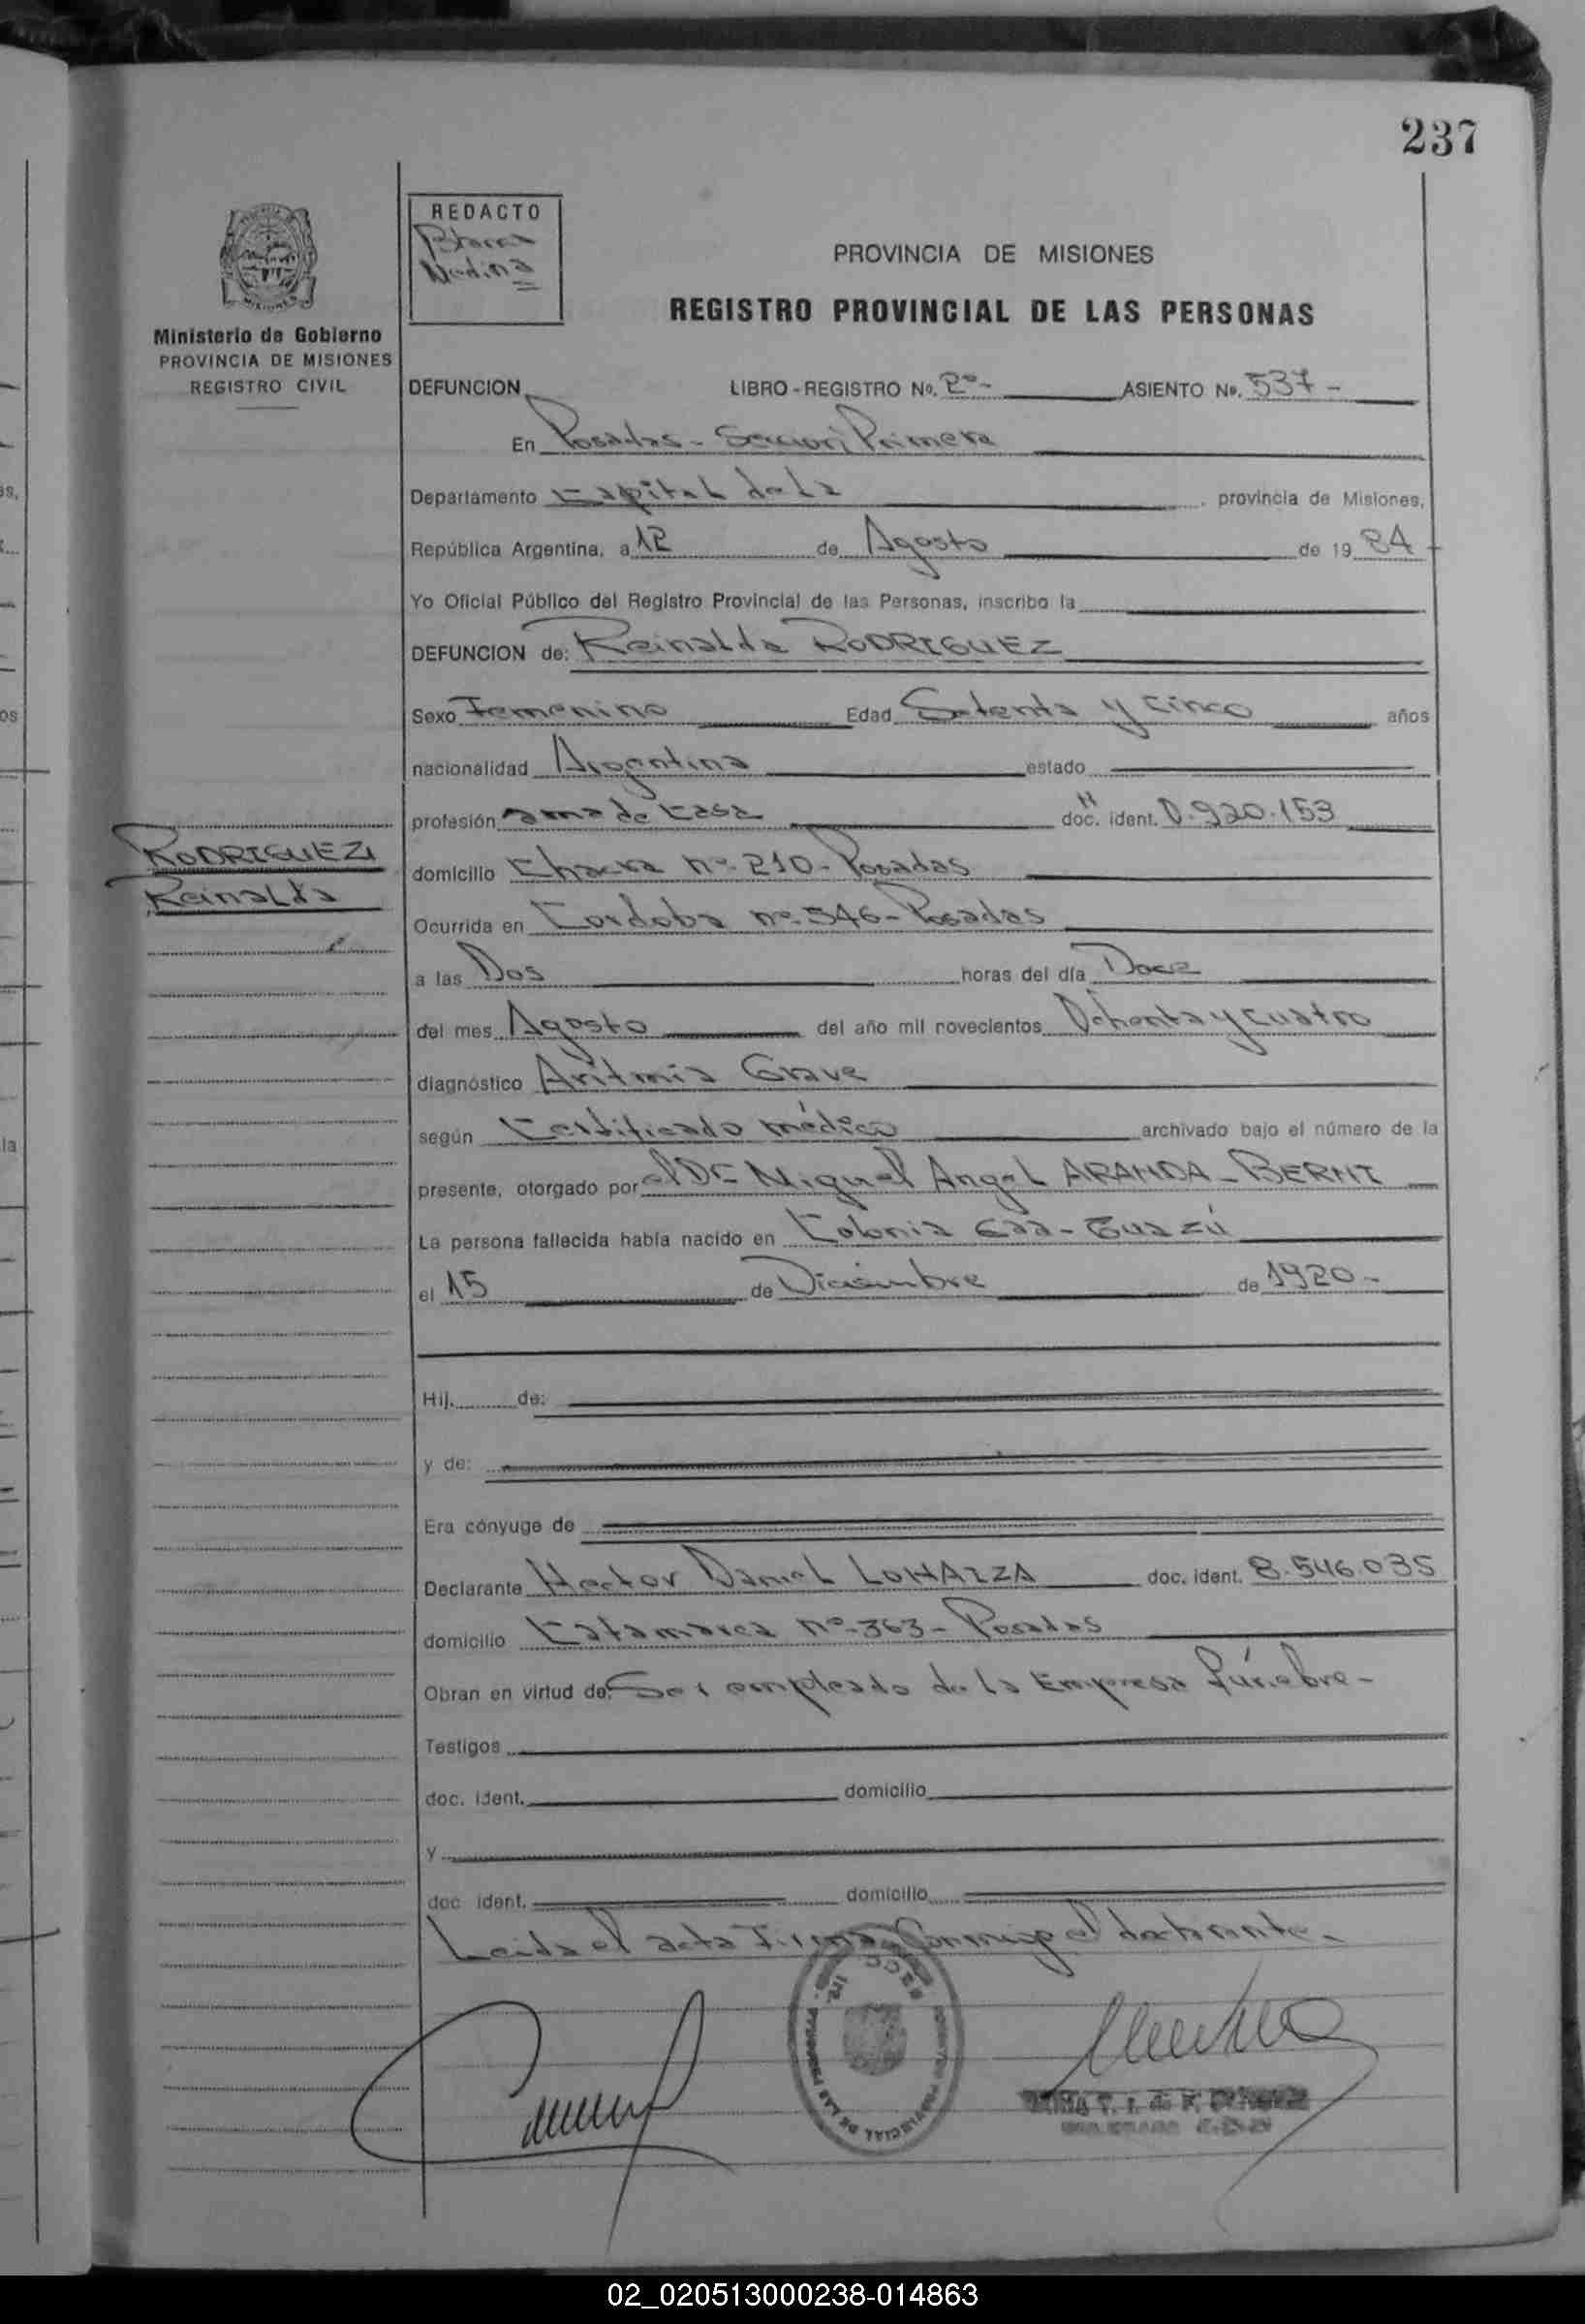 237
REDACTO
Medina
PROVINCIA DE MISIONES
REGISTRO PROVINCIAL DE LAS PERSONAS
Ministerio de Gobierno
PROVINCIA DE MISIONES
REGISTRO CIVIL
DEFUNCION LIBRO-REGISTRO No. 2º- ASIENTO No. 537-
En Posadas-Sección Primera
Departamento Capital de la , provincia de Misiones,
República Argentina, a 12 de Agosto de 1984
Yo Oficial Público del Registro Provincial de las Personas, inscribo la
DEFUNCION de: Reinalda RODRIGUEZ
Sexo Femenino Edad Setenta y cinco años
nacionalidad Argentina estado
profesión ama de casa doc. ident. 0.920.153
RODRIGUEZ,
Reinalda
domicilio Chacra nº-210-Posadas
Ocurrida en Cordoba nº-546-Posadas
a las Dos horas del día Doce
del mes Agosto del año mil novecientos Ochenta y cuatro
diagnóstico Aritmia Grave
según Certificado médico archivado bajo el número de la
presente, otorgado por el Dr Miguel Angel ARANDA-BERNI
La persona fallecida había nacido en Colonia Caa-Guazú
el 15 de Diciembre de 1920-
Hij. de:
y de:
Era cónyuge de
Declarante Hector Daniel LOHAIZA doc. ident. 8.546.035
domicilio Catamarca nº-363-Posadas
Obran en virtud de: Ser empleado de la Empresa fúnebre-
Testigos
doc. ident. domicilio
y
doc. ident. domicilio
Leida el acta Firma Conmigo el declarante-
02_020513000238-014863